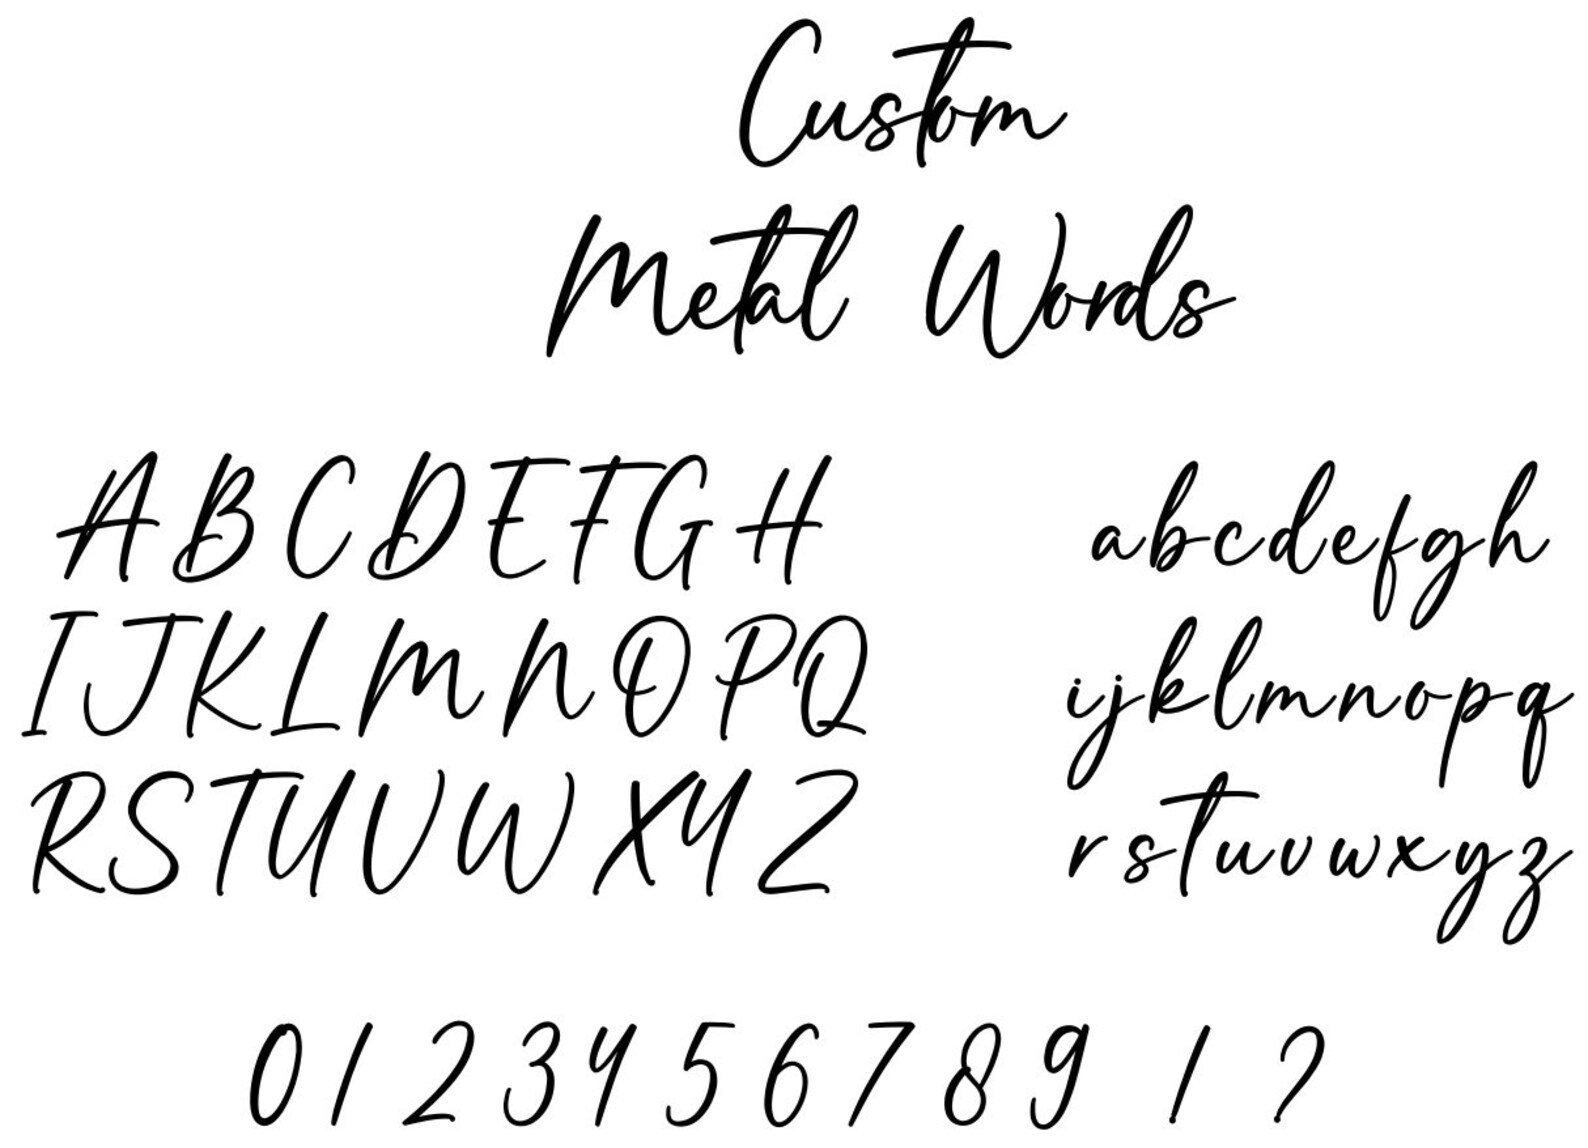 Custom
Metal Words
A B C D E F G H
a b c d e f g h
I J K L M N O P Q
i j k l m n o p q
R S T U V W X Y Z
r s t u v w x y z
0 1 2 3 4 5 6 7 8 9 ! ?